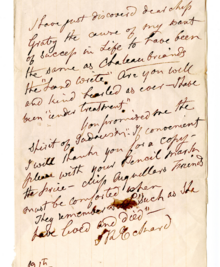 I have just discovered dear chip
Gratz the cause of my want
of success in Life to have been
the same as Chateaubriands
the band wrote. Are you well
and kind hearted as ever—I have
been "under treatment".
You promised me the
Spirit of . If convenient
I will thank you for a copy—
please with your Pencil mark
the price— chip Aguillar's Friends
must be comforted when
They remember Such as She
have lived and died"